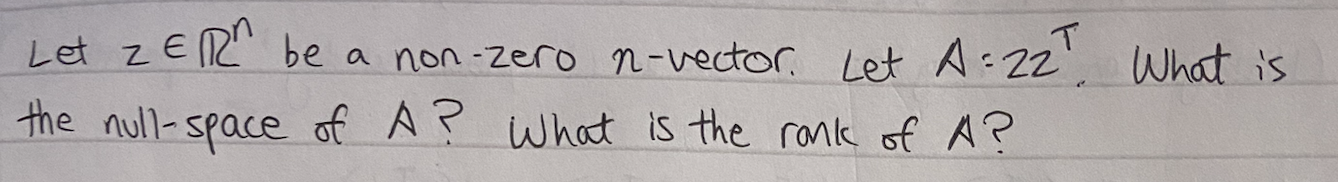 Let z ∈ ℝⁿ be a non-zero n-vector. Let A = zzᵀ. What is
the null-space of A? What is the rank of A?